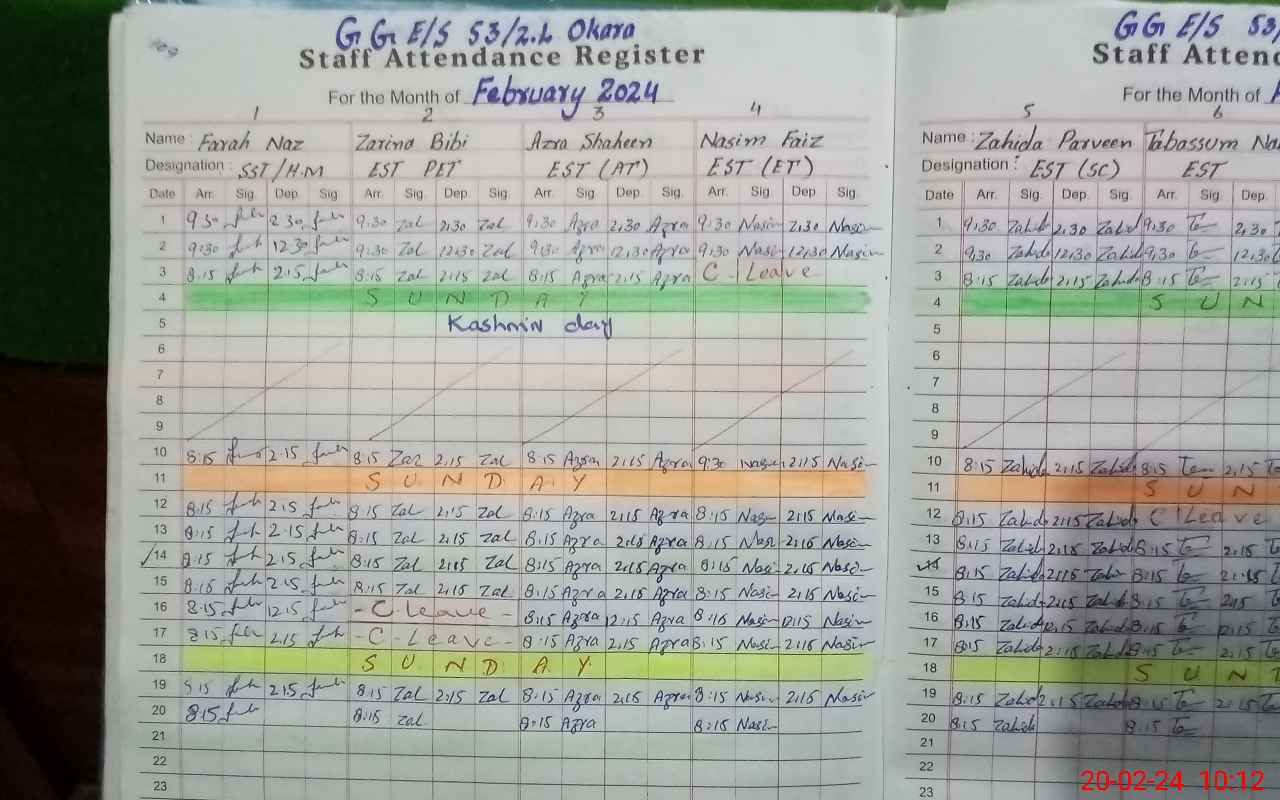 G G E/S 53/2.L Okara
Staff Attendance Register
For the Month of February 2024
1 2 3 4
Name : Farah Naz Zarina Bibi Azra Shaheen Nasim Faiz
Designation : SST/H.M EST PET EST (AT) EST (ET)
Date Arr. Sig. Dep. Sig. Arr. Sig. Dep. Sig. Arr. Sig. Dep. Sig. Arr. Sig. Dep. Sig.
1 9:30 2:30 9:30 Zal 2:30 Zal 9:30 Azra 2:30 Azra 9:30 Nasim 2:30 Nasim
2 9:30 12:30 9:30 Zal 12:30 Zal 9:30 Azra 12:30 Azra 9:30 Nasi 12:30 Nasim
3 8:15 2:15 8:15 Zal 2:15 Zal 8:15 Azra 2:15 Azra C - Leave
4 S U N D A Y
5 Kashmir day
6
7
8
9
10 8:15 2:15 8:15 Zal 2:15 Zal 8:15 Azra 2:15 Azra 9:30 Nasim 2:15 Nasim
11 S U N D A Y
12 8:15 2:15 8:15 Zal 2:15 Zal 8:15 Azra 2:15 Azra 8:15 Nasim 2:15 Nasim
13 8:15 2:15 8:15 Zal 2:15 Zal 8:15 Azra 2:15 Azra 8:15 Nasi 2:15 Nasim
14 8:15 2:15 8:15 Zal 2:15 Zal 8:15 Azra 2:15 Azra 8:15 Nasi 2:15 Nasim
15 8:15 2:15 8:15 Zal 2:15 Zal 8:15 Azra 2:15 Azra 8:15 Nasi 2:15 Nasim
16 8:15 12:15 - C - Leave - 8:15 Azra 12:15 Azra 8:15 Nasim 12:15 Nasim
17 8:15 2:15 - C - Leave - 8:15 Azra 2:15 Azra 8:15 Nasim 2:15 Nasim
18 S U N D A Y
19 8:15 2:15 8:15 Zal 2:15 Zal 8:15 Azra 2:15 Azra 8:15 Nasim 2:15 Nasim
20 8:15 8:15 Zal 8:15 Azra 8:15 Nasim
21
22
23
G G E/S 53/
Staff Atten
For the Month of
5 6
Name : Zahida Parveen Tabassum Na
Designation : EST (SC) EST
Date Arr. Sig. Dep. Sig. Arr. Sig. Dep.
1 9:30 Zahid 2:30 Zahid 9:30 2:30
2 9:30 Zahid 12:30 Zahid 9:30 12:30
3 8:15 Zahid 2:15 Zahid 8:15 2:15
4 S U N
5
6
7
8
9
10 8:15 Zahid 2:15 Zahid 8:15 2:15
11 S U N
12 8:15 Zahid 2:15 Zahid C Leave
13 8:15 Zahid 2:15 Zahid 8:15 2:15
14 8:15 Zahid 2:15 Zahid 8:15 2:15
15 8:15 Zahid 2:15 Zahid 8:15 2:15
16 8:15 Zahid 12:15 Zahid 8:15
17 8:15 Zahid 2:15 Zahid 8:15 2:15
18 S U N
19 8:15 Zahid 2:15 Zahid 8:15 2:15
20 8:15 Zahid 8:15
21
22
23
20-02-24 10:12